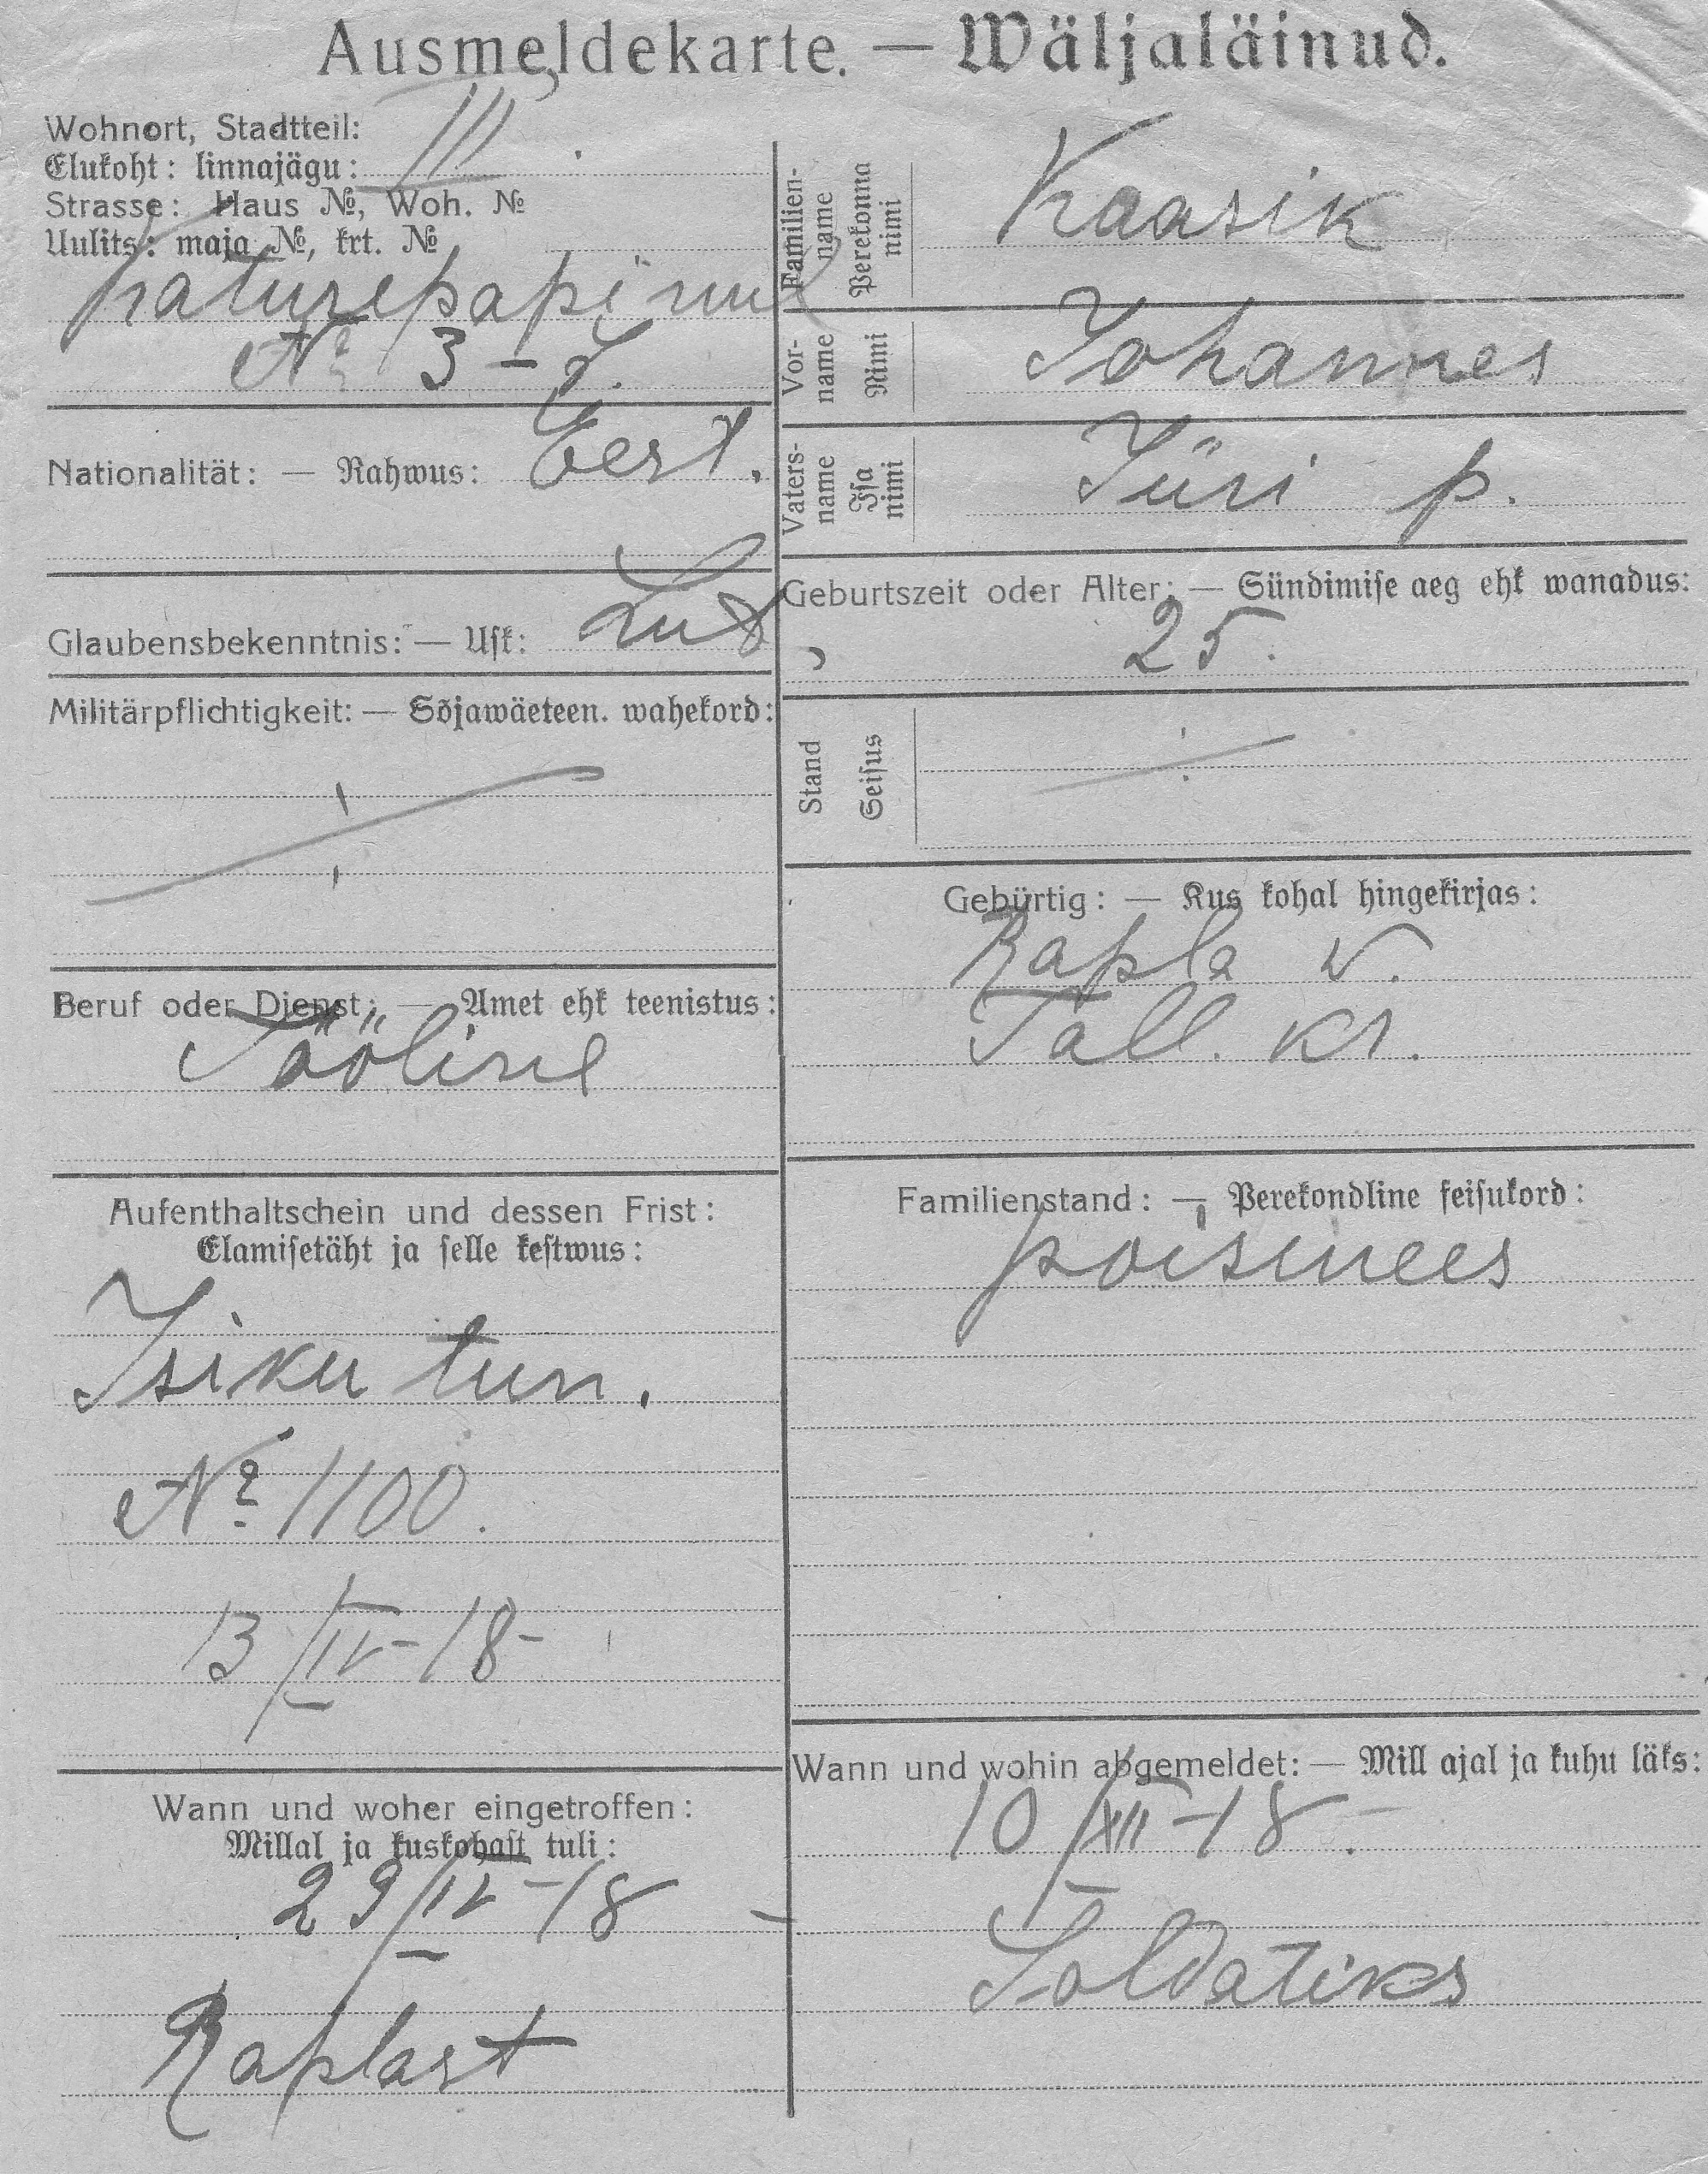 Ausmeldekarte. — Wäljaläinud.
Wohnort, Stadtteil:
Elukoht: linnajägu: III
Strasse: Haus №, Woh. №
Uulits: maja №, krt. №
№ 3 –
Nationalität: — Rahwus: Eest.
Glaubensbekenntnis: — Usk: Lut
Militärpflichtigkeit: — Sõjawäeteen. wahekord:
Beruf oder Dienst: — Amet ehk teenistus:
Tööline
Aufenthaltschein und dessen Frist:
Elamisetäht ja selle kestwus:
Isiku tun.
№ 1100.
13/IV–18–
Wann und woher eingetroffen:
Millal ja kuskohast tuli:
29/IV–18
Raplast
Familien-
name
Perekonna
nimi
Kaasik
Vor-
name
Nimi
Johannes
Vaters-
name
Isa
nimi
Jüri p.
Geburtszeit oder Alter: — Sündimise aeg ehk wanadus:
25.
Stand
Seisus
Gebürtig: — Kus kohal hingekirjas:
Rapla v.
Tall. kr.
Familienstand: — Perekondline seisukord:
poismees
Wann und wohin abgemeldet: — Mill ajal ja kuhu läks:
10/XII–18.
Soldatiks